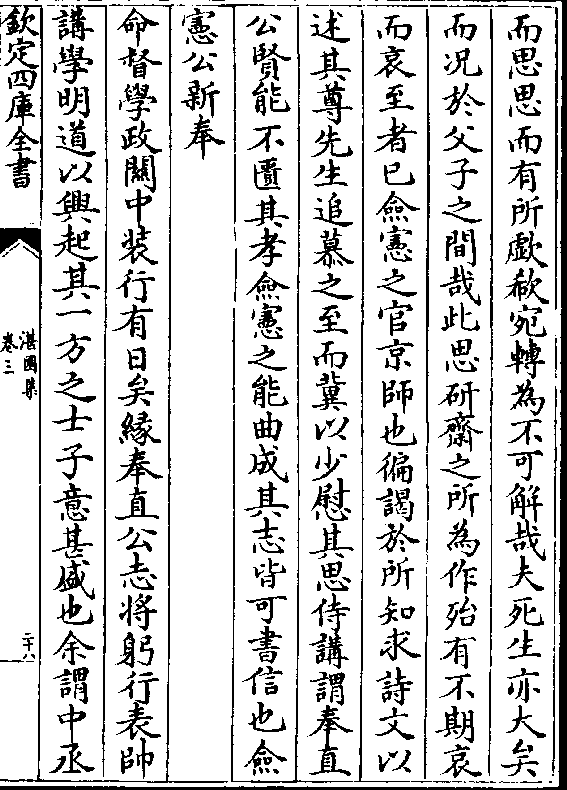 而思思而有所歔欷宛轉為不可解哉夫死生亦大矣
而况於父子之間哉此思研齋之所為作殆有不期哀
而哀至者已僉憲之官京師也徧謁於所知求詩文以
述其尊先生追慕之至而冀以少慰其思侍講謂奉直
公賢能不匱其孝僉憲之能曲成其志皆可書信也僉
憲公新奉
命督學政關中装行有日矣緣奉直公志將躬行表帥
講學明道以興起其一方之士子意甚盛也余謂中丞
欽定四庫全書
湛園集
卷三
二十八